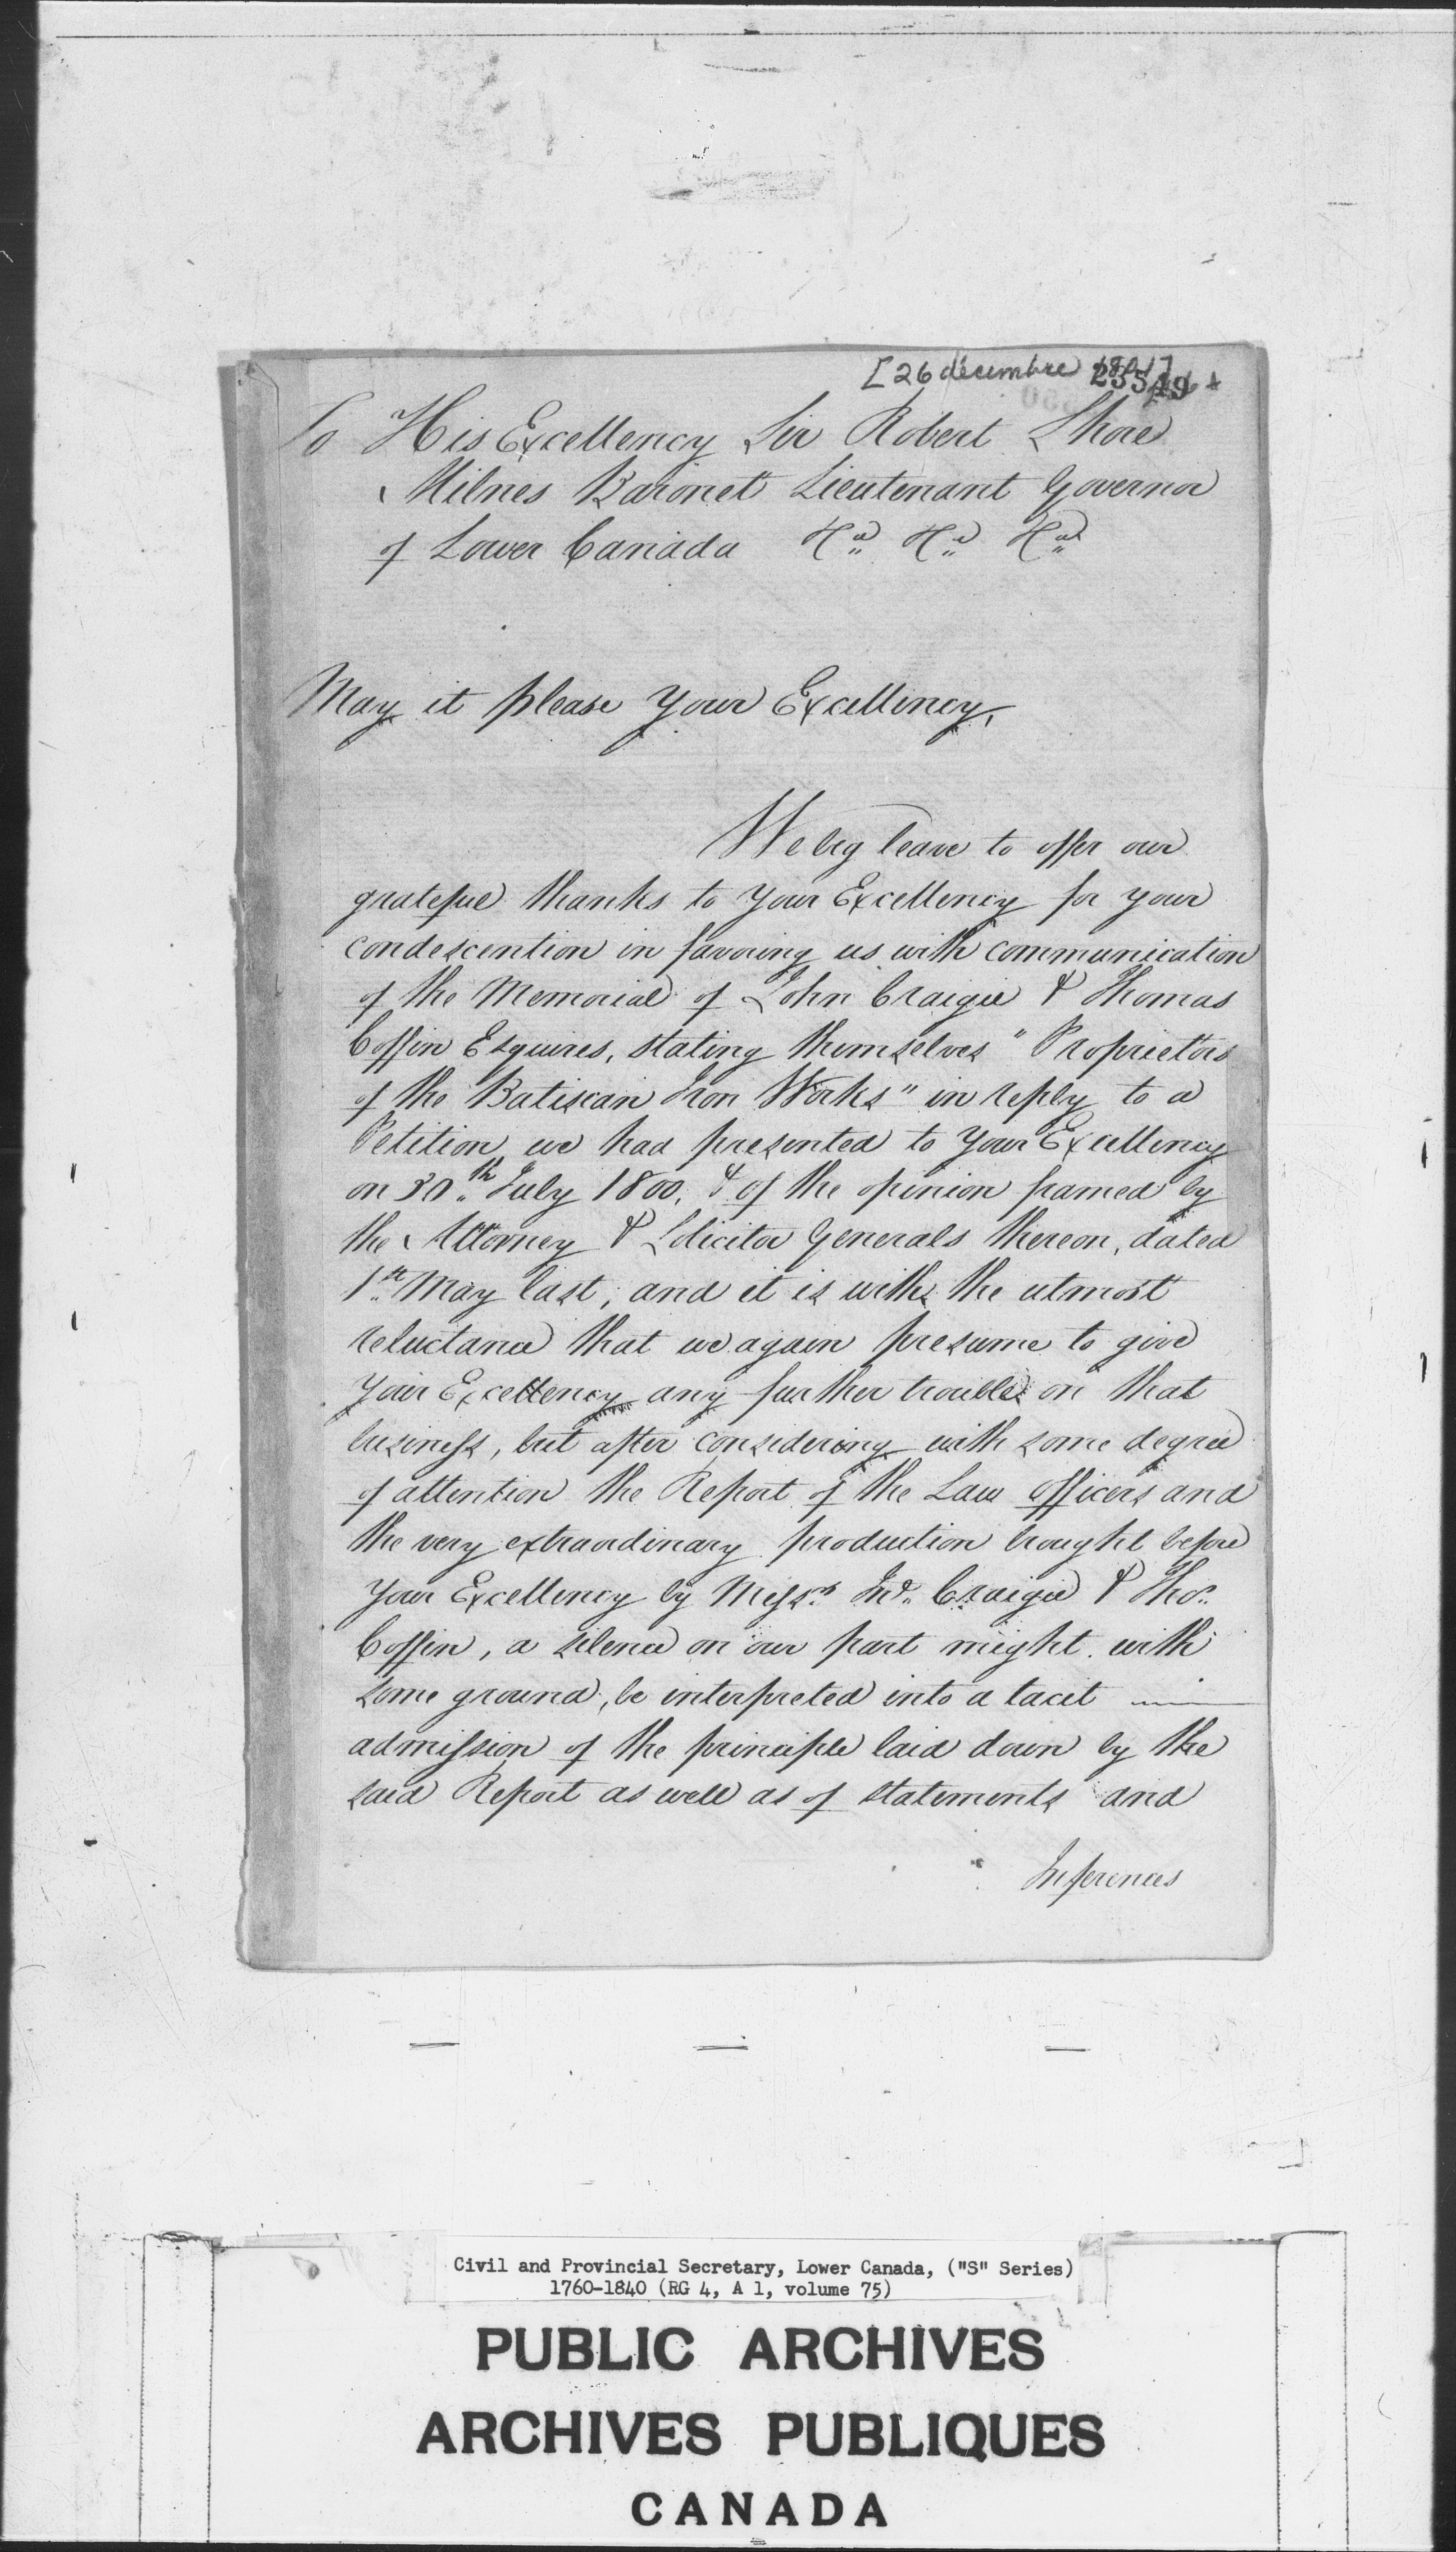 [26 décembre 1801]
23549
To His Excellency Sir Robert Shore
Milnes Baronet Lieutenant Governor
of Lower Canada &ca &ca &ca
May it please Your Excellency,
We beg leave to offer our
grateful thanks to Your Excellency for your
condescention in favouring us with communication
of the Memorial of John Craigie & Thomas
Coffin Esquires, stating themselves "Proprietors
of the Batiscan Iron Works" in reply to a
Petition we had presented to Your Excellency
on 30th July 1800, & of the opinion framed by
the Attorney & Solicitor Generals thereon, dated
1st May last; and it is with the utmost
reluctance that we again presume to give
Your Excellency any further trouble on that
business, but after considering with some degree
of attention the Report of the Law Officers and
the very extraordinary production brought before
Your Excellency by Messrs Jno. Craigie & Thos.
Coffin, a silence on our part might with
some ground, be interpreted into a tacit
admission of the principle laid down by the
said Report as well as of statements and
Inferences
Civil and Provincial Secretary, Lower Canada, ("S" Series)
1760-1840 (RG 4, A 1, volume 75)
PUBLIC ARCHIVES
ARCHIVES PUBLIQUES
CANADA